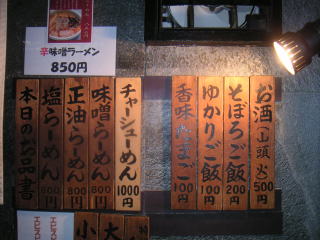 辛味噌ラーメン
850円
お酒(山頭火)500円
そぼろご飯 200円
ゆかりご飯 100円
香味たまご 100円
チャーシューめん 1000円
味噌らーめん 800円
正油らーめん 800円
塩らーめん 800円
本日のお品書
大
小
エビス
エビス